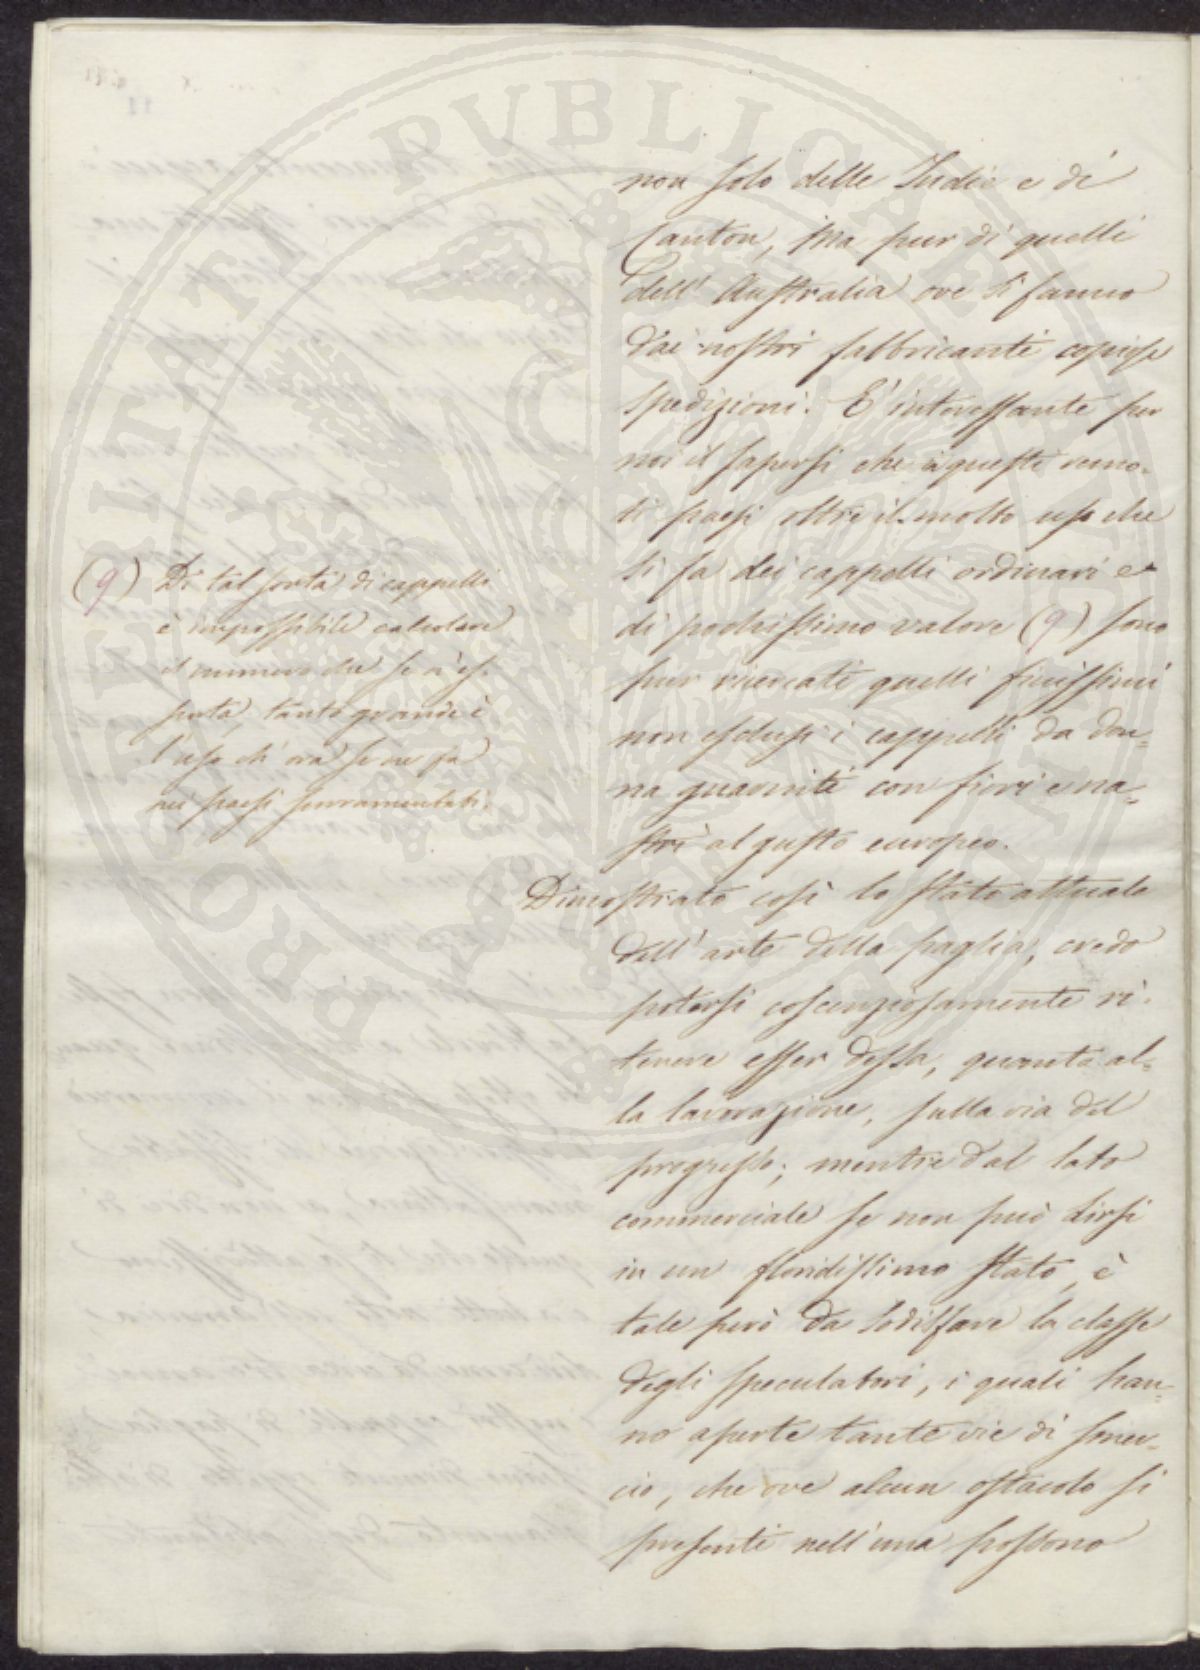 non solo delle Indie e di
Canton, Ma pur di quelli
dell'Australia ove si fanno
dai nostri fabbricanti copiose
spedizioni. E' interessante per
noi il sapersi che a questi remo-
ti paesi oltre il molto uso che
si fa dei cappelli ordinari e
di pochissimo valore (9) sono
pur ricercati quelli finissimi
non esclusi i cappelli da don=
na guarniti con fiori e na=
stri al gusto europeo.
Dimostrato così lo stato attuale
dell'arte della paglia, credo
potersi coscenziosamente ri-
tenere esser dessa, quanto al=
la lavorazione, sulla via del
progresso; mentre dal lato
commerciale se non può dirsi
in un floridissimo stato, è
tale però da sodisfare la classe
degli speculatori, i quali han=
no aperte tante vie di smer=
cio, che ove alcun ostacolo si
presenti nell'una possono
(9) Di tal sorta di cappelli
è impossibile calcolare
il numero che se n'es-
porta, tanto grande è
l'uso ch'ora se ne fa
nei paesi summentati.
PROSPERITATI PUBLICAE